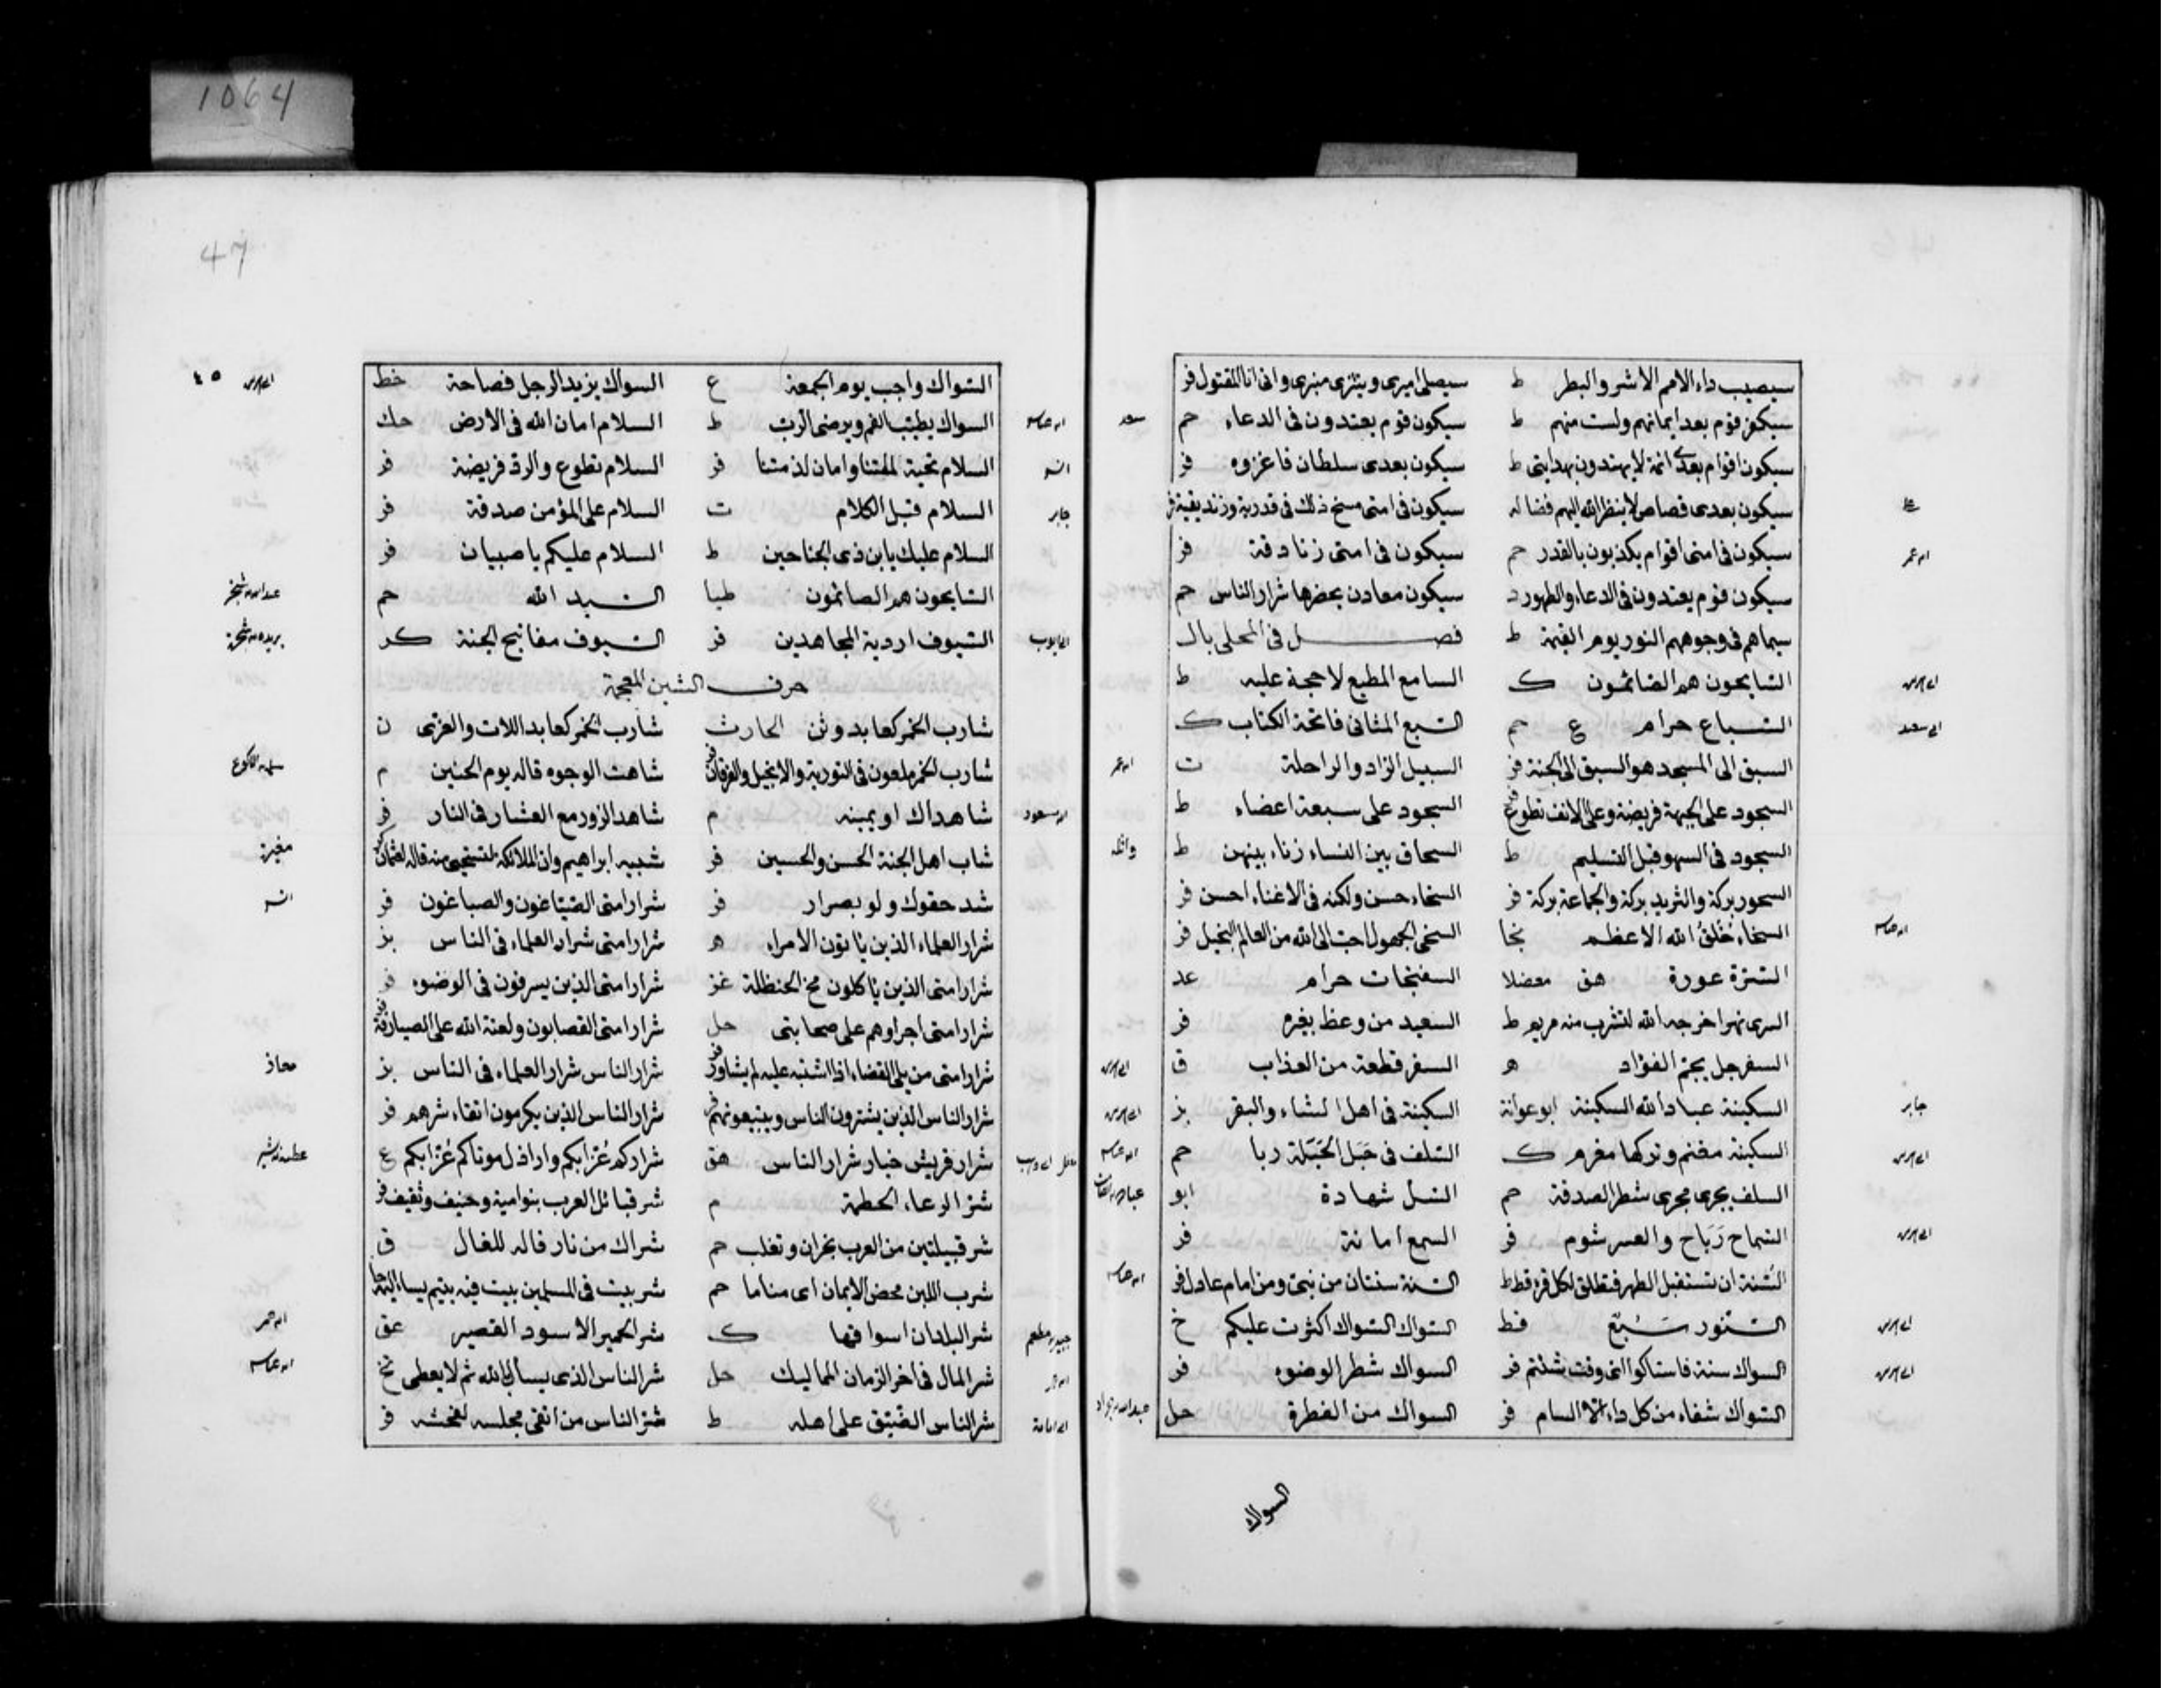 1064
47
سيصيب داء الامم الاشر والبطر ط سيصلى اميرى وينزى منبرى وانى انا المقتول فر
سيكفر قوم بعد ايمانهم ولست منهم ط سيكون قوم يعتدون فى الدعاء حم
سعد
سيكون اقوام بعدى ائمة لا يهتدون بهدايتى ط سيكون بعدى سلطان فاغزوه فر
سيكون بعدى قصاص لا ينظر الله اليهم سيكون فى امتى مسخ ذلك فى قدرية وزنديقية فر
سيكون فى امتى اقوام يكذبون بالقدر حم سيكون فى امتى زنادقة فر
سيكون قوم يعتدون فى الدعاء والطهور د سيكون معادن يحضرها شرار الناس حم
سيماهم فى وجوههم النور يوم القيمة ط فصل فى المحلى بال
السايحون هم الصائمون ك السامع المطيع لا حجة عليه ط
السباع حرام ع حم السبع المثانى فاتحة الكتاب ك
السبق الى المسجد هو السبق الى الجنة فر السبيل الزاد والراحلة ت
السجود على الجبهة فريضة وعلى الانف تطوع فر السجود على سبعة اعضاء ط
السجود فى السهو قبل التسليم ط السحاق بين النساء زناء بينهن ط
السحور بركة والثريد بركة والجماعة بركة فر السخاء حسن ولكنه فى الاغنياء احسن فر
السخاء خُلُقُ الله الاعظم نجا السخى الجهول احب الى الله من العالم البخيل فر
السترة عورة هق معضلا السفنجات حرام عد
السرى نهر اخرجه الله لتشرب منه مريم ط السعيد من وعظ بغيره فر
السفرجل يجم الفؤاد ه السفر قطعة من العذاب ق
السكينة عباد الله السكينة ابو عوانة السكينة فى اهل الشاء والبقر بز
جابر
السكينة مغنم وتركها مغرم ك السلف فى حَبَل الحَبَلة ربا حم
السلف يجرى مجرى شطر الصدقة حم السل شهادة ابو
السماح رَبَاح والعسر شوم فر السمع امانة فر
السنة ان تستقبل الطهر فتطلق لكل قرء قط ط السنة سنتان من نبى ومن امام عادل فر
السنور سَبُع قط السواك السواك اكثرت عليكم خ
السواك سنة فاستاكوا اى وقت شئتم فر السواك شطر الوضوء فر
السواك شفاء من كل داء الا السام فر السواك من الفطرة حل
السواك
السواك واجب يوم الجمعة ع السواك يزيد الرجل فصاحة خط
٤٥
السواك يطيب الفم ويرضى الرب ط السلام امان الله فى الارض حك
السلام تحية لملتنا وامان لذمتنا فر السلام تطوع والرد فريضة فر
السلام قبل الكلام ت السلام على المؤمن صدقة فر
جابر
السلام عليك يا ابن ذى الجناحين ط السلام عليكم يا صبيان فر
السايحون هم الصائمون طيا السيد الله حم
السيوف اردية المجاهدين فر السيوف مفاتيح الجنة كر
حرف الشين المعجمة
شارب الخمر كعابد وثن الحارث شارب الخمر كعابد اللات والعزى ن
شارب الخمر ملعون فى التورية والانجيل والفرقان فر شاهت الوجوه قاله يوم الحنين م
شاهداك او يمينه م شاهد الزور مع العشار فى النار فر
شاب اهل الجنة الحسن والحسين فر شبيه ابراهيم وان الملائكة لتستحيى منه قاله لعثمان
شد حقوك ولو بصرار فر شرار امتى الصياغون والصباغون فر
شرار العلماء الذين ياتون الامراء ه شرار امتى شرار العلماء فى الناس بز
شرار امتى الذين ياكلون مخ الحنظلة غز شرار امتى الذين يسرفون فى الوضوء فر
شرار امتى اجراوهم على صحابتى حل شرار امتى القصابون ولعنة الله على الصيارفة فر
شرار امتى من يلى القضاء اذا اشتبه عليه لم يشاور فر شرار الناس شرار العلماء فى الناس بز
معاذ
شرار الناس الذين يشترون الناس ويبيعونهم فر شرار الناس الذين يكرمون اتقاء شرهم فر
شرار قريش خيار شرار الناس هق شراركم عُزابكم واراذل موتاكم عُزابكم ع
شر الرعاء الحطمة م شر قبائل العرب بنو امية وحنيف وثقيف فر
شر قبيلتين من العرب نجران وتغلب حم شراك من نار قاله للغال ق
شرب اللبن محض الايمان اى مناما حم شر بيت فى المسلمين بيت فيه يتيم يساء اليه
شر البلدان اسواقها ك شر الحمير الاسود القصير عق
شر المال فى اخر الزمان المماليك حل شر الناس الذى يسأل بالله ثم لا يعطى تخ
شر الناس الضيق على اهله ط شر الناس من اتقى مجلسه لفحشه فر